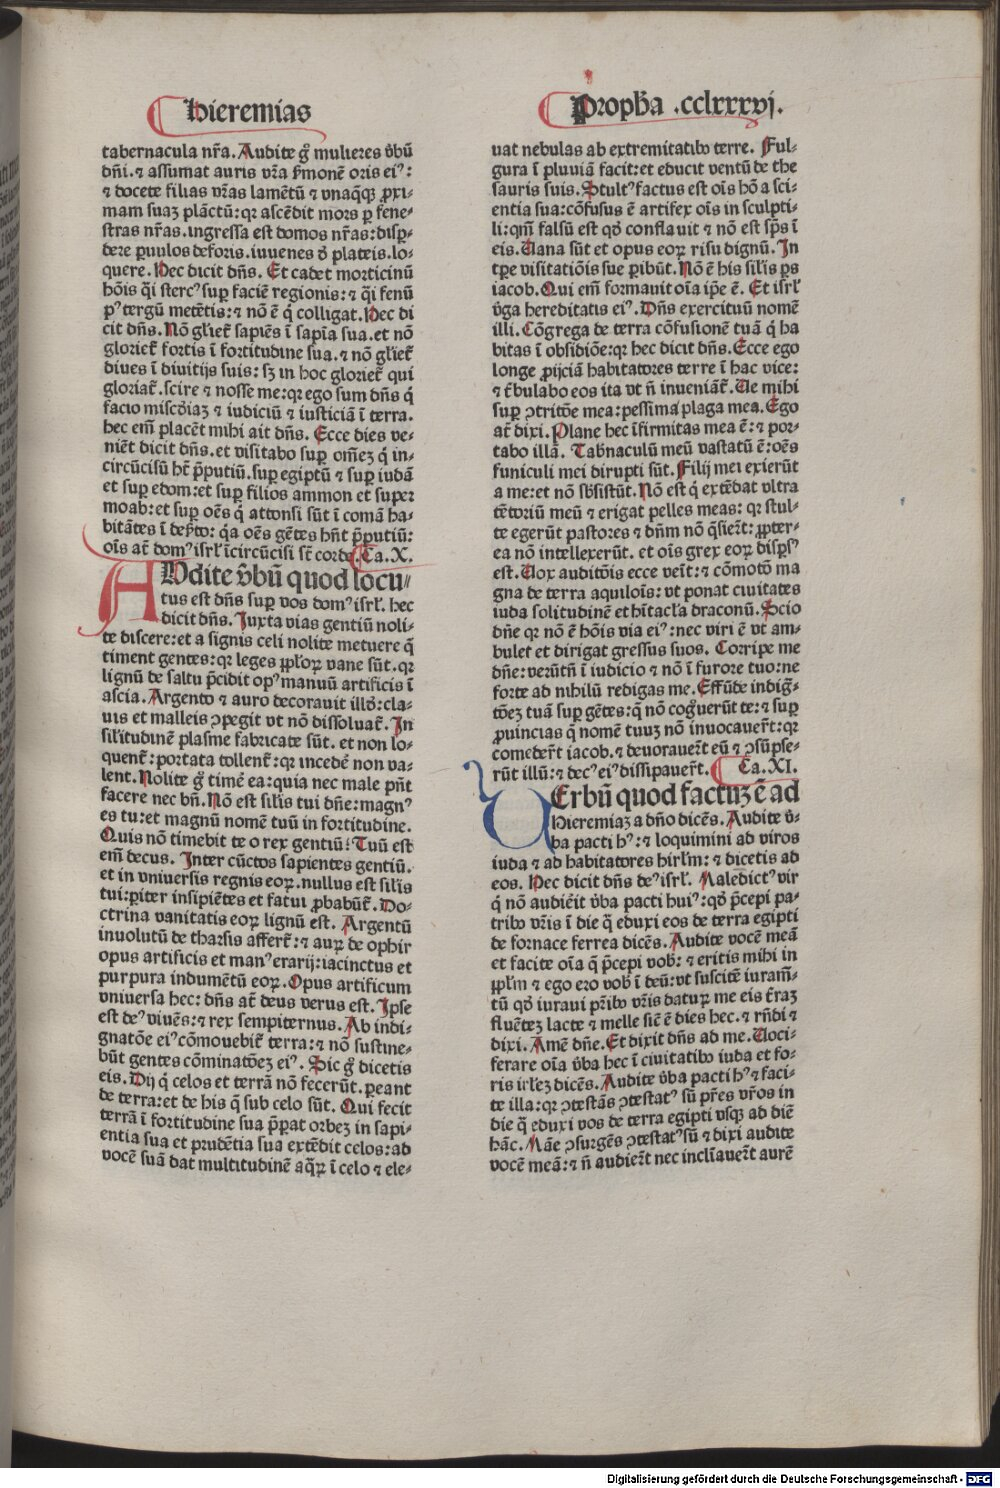 Hieremias
Propha .cclxxxvj.
tabernacula nr̃a. Audite gͦ mulieres v̾bū
dñi. ⁊ assumat auris vr̃a s̾monē oris eiꝰ:
⁊ docete filias vr̃as lamētū ⁊ vnaq̄qꝫ ꝓxi⸗
mam suaꝫ plāctū: qꝛ ascēdit mors ꝑ fene⸗
stras nr̃as. ingressa est domos nr̃as: disꝑ⸗
dere ꝑuulos deforis. iuuenes ď plateis. lo⸗
quere. Hec dicit dñs. Et cadet morticinū
hōis q̇i stercꝰ suꝑ faciē regionis: ⁊ q̇i fenū
pꝰ tergū metētis: ⁊ nō ē q̇ colligat. Hec di
cit dñs. Nō gl'iet̃ sapiēs ī sapīa sua. et nō
gloriet̃ fortis ī fortitudine sua. ⁊ nō gl'iet̃
diues ī diuitijs suis: sꝫ in hoc gloriet̃ qui
gloriat̃. scire ⁊ nosse me: qꝛ ego sum dñs q̇
facio miscďiaꝫ ⁊ iudiciū ⁊ iusticiā ī terra.
hec em̄ placēt mihi ait dñs. Ecce dies ve⸗
niēt dicit dñs. et visitabo suꝑ om̄eꝫ q̇ in⸗
circūcisū hꝫ p̄putiū. suꝑ egiptū ⁊ suꝑ iudā
et suꝑ edom: et suꝑ filios ammon et super
moab: et suꝑ oēs q̇ attonsi sūt ī comā ha⸗
bitātes ī deẜto: q̇a oēs gētes hn̄t p̄putiū:
oīs at̄ domꝰ isrl' īcircūcisi sūt corde. Ca. X.
AVdite v̾bū quod locu⸗
tus est dñs suꝑ vos domꝰ isrl'. hec
dicit dñs. Juxta vias gentiū noli⸗
te discere: et a signis celi nolite metuere q̄
timent gentes: qꝛ leges ppl'oꝝ vane sūt. qꝛ
lignū de saltu p̄cidit opꝰ manuū artificis ī
ascia. Argento ⁊ auro decorauit illď: cla⸗
uis et malleis ꝯpegit vt nō dissoluat̃. In
sil'itudinē palme fabricate sūt. et non lo⸗
quent̃: portata tollent̃: qꝛ incedē non va⸗
lent. Nolite gͦ timē ea: quia nec male pn̄t
facere nec bn̄. Nō est sil'is tui dñe: magnꝰ
es tu: et magnū nomē tuū in fortitudine.
Quis nō timebit te o rex gentiū? Tuū est
em̄ decus. Inter cūctos sapientes gentiū.
et in vniuersis regnis eoꝝ. nullus est sil'is
tui: ꝑiter insipiētes et fatui ꝓbabūt̃. Do⸗
ctrina vanitatis eoꝝ lignū est. Argentū
inuolutū de tharsis affert̃: ⁊ auꝝ de ophir
opus artificis et manꝰ erarij: iacinctus et
purpura indumētū eoꝝ. Opus artificum
vniuersa hec: dñs at̄ deus verus est. Ipse
est deꝰ viuēs: ⁊ rex sempiternus. Ab indi⸗
gnatōe eiꝰ cōmouebit̃ terra: ⁊ nō sustine⸗
būt gentes cōminatōeꝫ eiꝰ. Sic gͦ dicetis
eis. Dij q̇ celos et terrā nō fecerūt. ꝑeant
de terra: et de his q̄ sub celo sūt. Qui fecit
terrā ī fortitudine sua p̄ꝑat orbeꝫ in sapi⸗
entia sua et prudētia sua extēdit celos: ad
vocē suā dat multitudinē aq̄ꝝ ī celo ⁊ ele⸗
uat nebulas ab extremitatibꝰ terre. Ful⸗
gura ī pluuiā facit: et educit ventū de the
sauris suis. Stultꝰ factus est oīs hō a sci⸗
entia sua: cōfusus ē artifex oīs in sculpti⸗
li: qm̄ falsū est qď conflauit ⁊ nō est sp̄s ī
eis. Uana sūt et opus eoꝝ risu dignū. In
tꝑe visitatiōis sue ꝑibūt. Nō ē his sil'is ꝑs
iacob. Qui em̄ formauit oīa ip̄e ē. Et isrl'
v̾ga hereditatis eiꝰ. Dñs exercituū nomē
illi. Cōgrega de terra cōfusionē tuā q̇ ha
bitas ī obsidiōe: qꝛ hec dicit dñs. Ecce ego
longe ꝓijciā habitatores terre ī hac vice:
⁊ t̾bulabo eos ita vt n̄ inueniāt̃. Ue mihi
suꝑ ꝯtritōe mea: pessima plaga mea. Ego
at̄ dixi. Plane hec īfirmitas mea ē: ⁊ por⸗
tabo illā. Tab̾naculū meū vastatū ē: oēs
funiculi mei dirupti sūt. Filij mei exierūt
a me: et nō sb̾sistūt. Nō est q̇ extēdat vltra
tētoriū meū ⁊ erigat pelles meas: qꝛ stul⸗
te egerūt pastores ⁊ dñm nō q̄sier̃t: ꝓpter⸗
ea nō intellexerūt. et oīs grex eoꝝ disꝑsꝰ
est. Uox auditōis ecce veīt: ⁊ cōmotō ma
gna de terra aquilōis: vt ponat ciuitates
iuda solitudinē et hītacl'a draconū. Scio
dñe qꝛ nō ē hōis via eiꝰ: nec viri ē vt am⸗
bulet et dirigat gressus suos. Corripe me
dñe: verūtn̄ ī iudicio ⁊ nō ī furore tuo: ne
forte ad nihilū redigas me. Effūde indig̃⸗
tōeꝫ tuā suꝑ gētes: q̄ nō cogͦuerūt te: ⁊ suꝑ
ꝓuincias q̄ nomē tuuꝫ nō inuocauer̃t: qꝛ
comeder̃t iacob. ⁊ deuorauer̃t eū ⁊ ꝯsūpse⸗
rūt illū: ⁊ decꝰ eiꝰ dissipauer̃t. Ca. XI.
UErbū quod factuꝫ ē ad
Hieremiaꝫ a dño dicēs. Audite v̾⸗
ba pacti hꝰ: ⁊ loquimini ad viros
iuda ⁊ ad habitatores hirl'm: ⁊ dicetis ad
eos. Hec dicit dñs deꝰ isrl'. Maledictꝰ vir
q̇ nō audieit v̾ba pacti huiꝰ: qď p̄cepi pa⸗
tribꝰ vr̃is ī die q̄ eduxi eos de terra egipti
de fornace ferrea dicēs. Audite vocē meā
et facite oīa q̄ p̄cepi vob̾: ⁊ eritis mihi in
ppl'm ⁊ ego ero vob̾ ī deū: vt suscitē iuram̄⸗
tū qď iuraui pr̃ibꝰ vr̃is daturꝝ me eis t̾raꝫ
fluēteꝫ lacte ⁊ melle sic̄ ē dies hec. ⁊ rn̄di ⁊
dixi. Amē dñe. Et dixit dñs ad me. Uoci⸗
ferare oīa v̾ba hec ī ciuitatibꝰ iuda et fo⸗
ris irl'eꝫ dicēs. Audite v̾ba pacti hꝰ ⁊ faci⸗
te illa: qꝛ ꝯtestās ꝯtestatꝰ sū pr̃es vr̃os in
die q̄ eduxi vos de terra egipti vsqꝫ ad diē
hāc. Māe ꝯsurgēs ꝯtestatꝰ sū ⁊ dixi audite
vocē meā: ⁊ n̄ audier̃t nec inclīauer̃t aurē
Digitalisierung gefördert durch die Deutsche Forschungsgemeinschaft - DFG